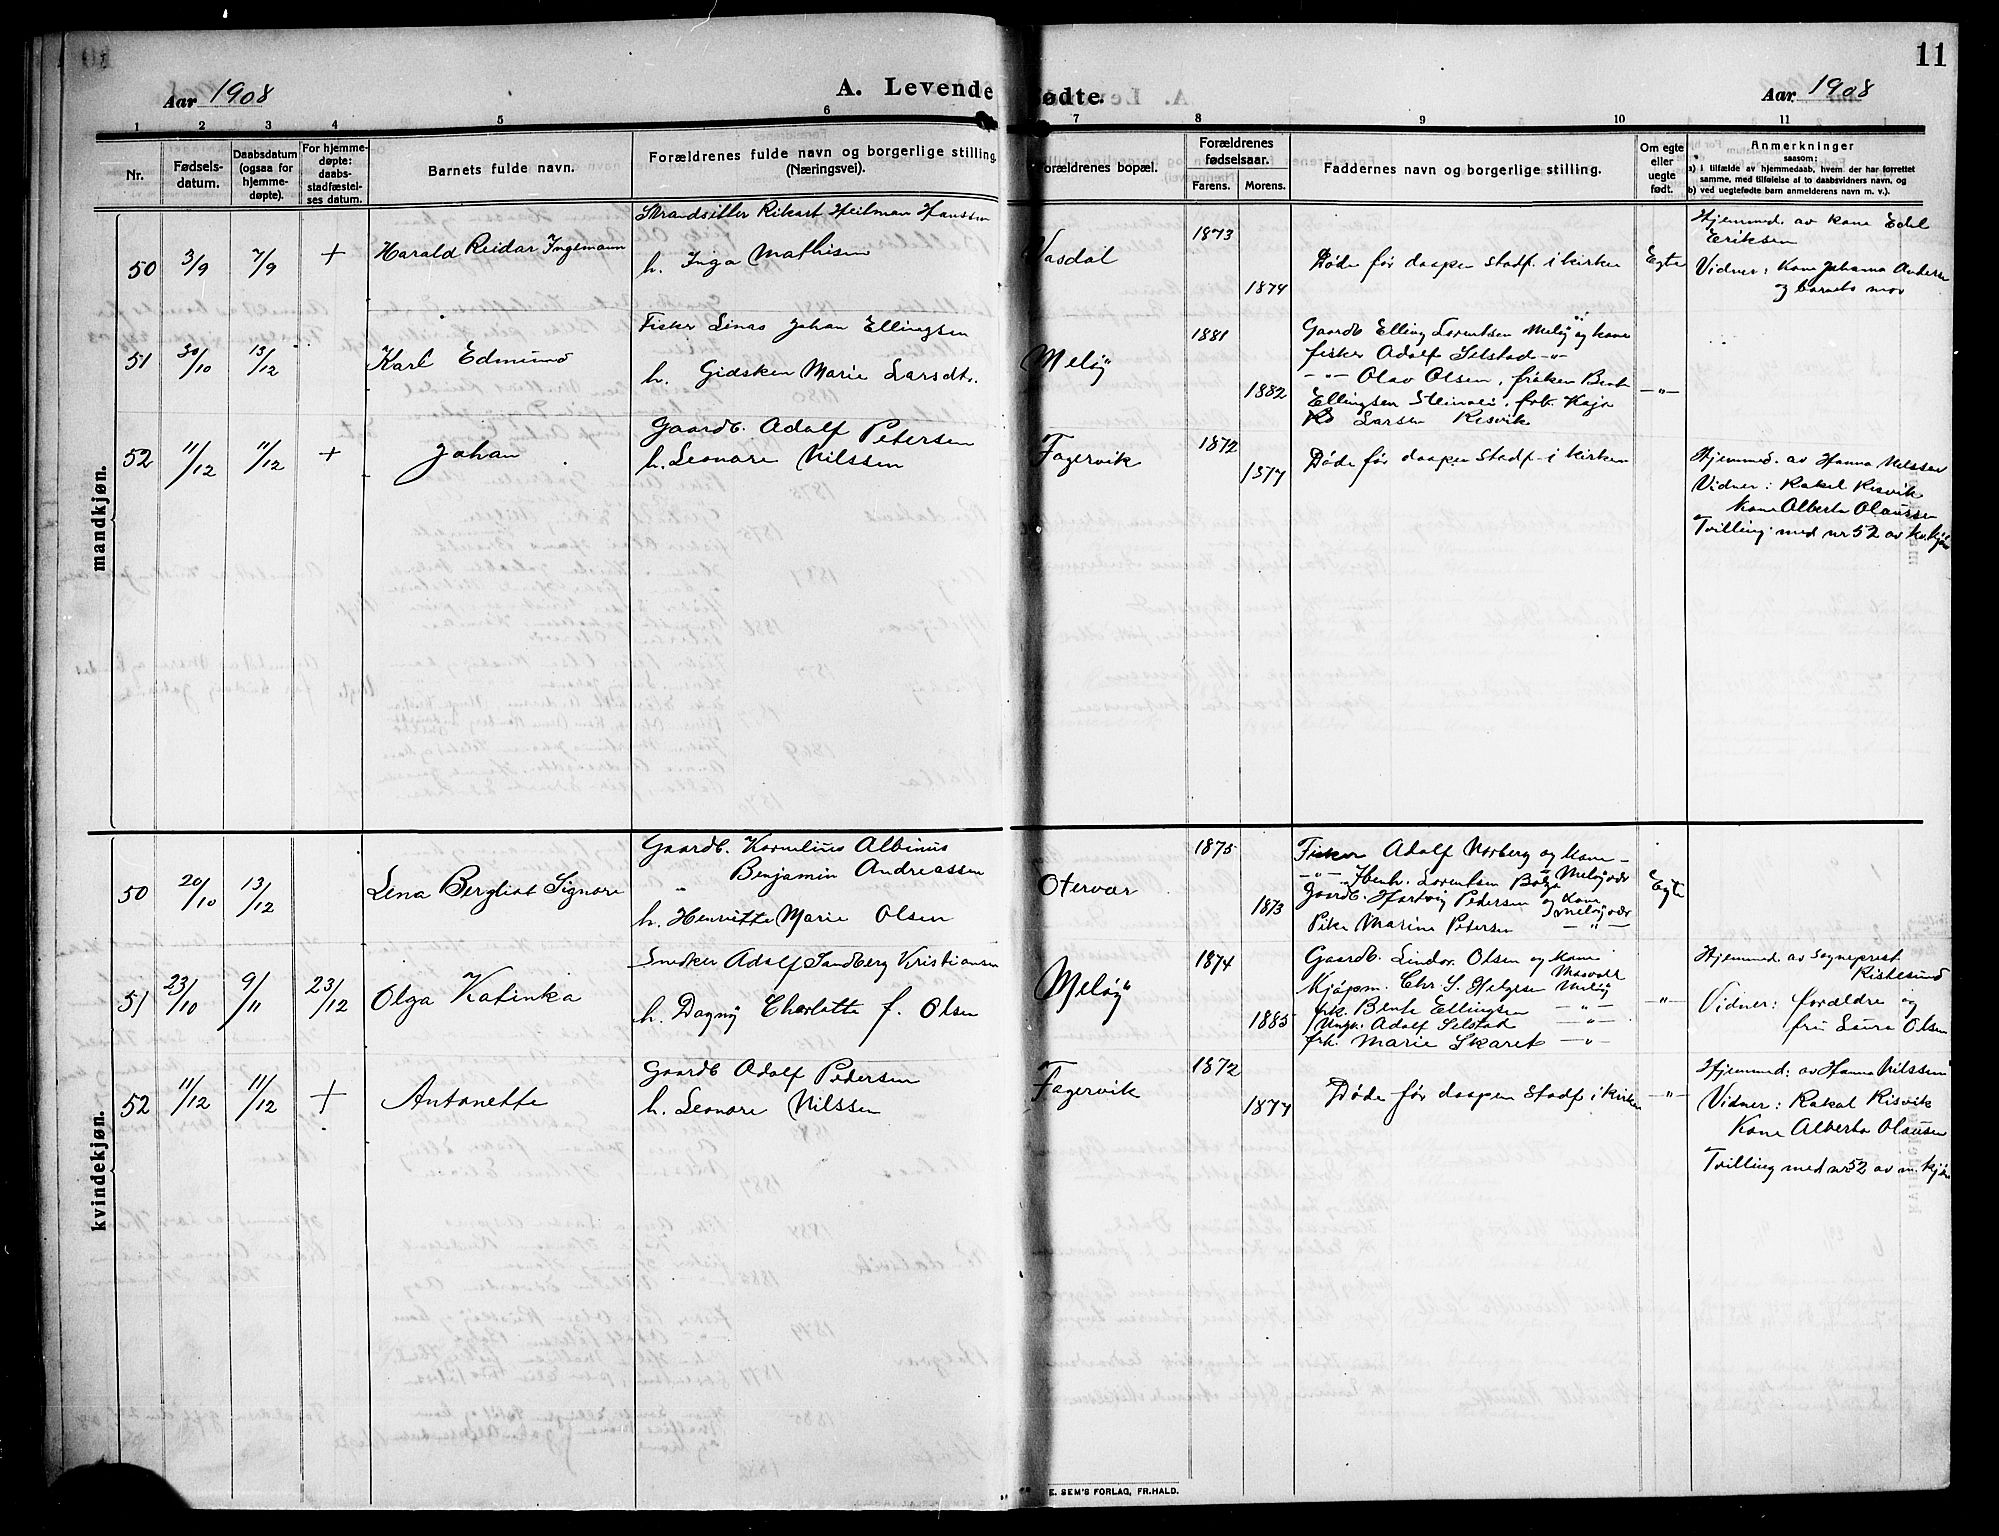 11
Aar 1908
A. Levende fødte.
Aar 1908
1 2 3 4 5 6 7 8 9 10 11
Nr.
Fødsels-
datum.
Daabsdatum
(ogsaa for
hjemme-
døpte).
For hjemme-
døpte:
daabs-
stadfæstel-
ses datum.
Barnets fulde navn.
Forældrenes fulde navn og borgerlige stilling
(Næringsvei).
Forældrenes bopæl.
Forældrenes
fødselsaar.
Farens. Morens.
Faddernes navn og borgerlige stilling.
Om egte
eller
uegte
født.
Anmerkninger
saasom:
a) i tilfælde av hjemmedaab, hvem der har forrettet
samme, med tilføielse af to daabsvidners navn, og
b) ved uegtefødte barn anmelderens navn m. v.).
mandkjøn.
50
3/9
7/9
+
Harald Reidar Ingemann
Strandsitter Rikart Heitman Hanssen
h. Inga Mathisen
Vasdal
1873
1874
Døde før daapen stadf. i kirken
Egte
Hjemmed. av kone Edel
Eriksen
Vidner: Kone Johanna Anderse
og barnets mor
51
30/10
13/12
Karl Edmund
Fisker Linas Johan Ellingsen
h. Gidsken Marie Larsdtr.
Meløy
1881
1882
Gaardb. Elling Lorentsen Meløy og kone
fisker Adolf Selstad -"-
-"- Olav Olsen, frøken Bente
Ellingsen Steinvei, frk. Kaja
Larsen Risvik
-"-
52
11/12
11/12
+
Johan
Gaardb. Adolf Petersen
h. Leonore Nilssen
Fagervik
1872
1877
Døde før daapen stadf. i kirken
Hjemmed. av Hanna Nilssen
Vidner: Rakel Risvik
Kone Alberta Olaussen
Tvilling med nr 52 av kv.kjøn
kvindekjøn.
50
20/10
13/12
Lena Bergliot Signore
Gaardb. Kornelius Albinus
" Benjamin Andreassen
h. Henriette Marie Olsen
Otervær
1875
1873
Fisker Adolf Norberg og Kone -
-"- Ibenh. Lorentsen Bolga Meløyvær
Gaardb. Hartvig Pedersen og Kone
Meløyvær
Pike Marine Petersen -"-
Egte
51
23/10
9/11
23/12
Olga Katinka
Snedker Adolf Sandberg Kristiansen
h. Dagny Charlotte f. Olsen
Meløy
1874
1885
Gaardb. Lindor Olsen og kone
Mosvold
Kjøpm. Chr. S. Helgesen Meløy
frk. Bente Ellingsen -"-
Ungk. Adolf Selstad -"-
frk. Marie Skaret -"-
-"-
Hjemmed. av Sogneprest
Ristesund
Vidner: forældre og
fru Laura Olsen
52
11/12
11/12
+
Antonette
Gaardb Adolf Pedersen
h. Leonore Nilssen
Fagervik
1872
1877
Døde før daapen Stadf. i kirken
-"-
Hjemmed: av Hanna Nilssen
Vidner: Rakel Risvik
Kone Alberta Olaussen
Tvilling med nr 52 av m.kjøn
E. SEM'S FORLAG, FR.HALD.